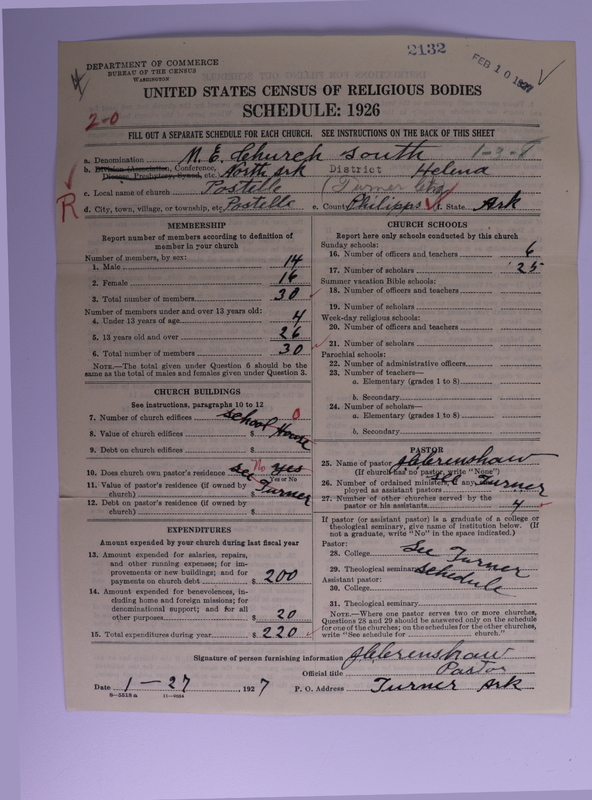 2132
FEB 10 1927
DEPARTMENT OF COMMERCE
BUREAU OF THE CENSUS
WASHINGTON
UNITED STATES CENSUS OF RELIGIOUS BODIES
SCHEDULE: 1926
2-0
FILL OUT A SEPARATE SCHEDULE FOR EACH CHURCH. SEE INSTRUCTIONS ON THE BACK OF THIS SHEET
a. Denomination M. E. Church South 1-3-8
b. Division (Association, Conference, North Ark District Helena
Diocese, Presbytery, Synod, etc.
c. Local name of church Postelle (Turner Chg)
R
d. City, town, village, or township, etc. Postelle e. County Philipps f. State Ark
MEMBERSHIP
Report number of members according to definition of
member in your church
Number of members, by sex:
1. Male 14
2. Female 16
3. Total number of members 30
Number of members under and over 13 years old:
4. Under 13 years of age 4
5. 13 years old and over 26
6. Total number of members 30
NOTE.—The total given under Question 6 should be the
same as the total of males and females given under Question 3.
CHURCH BUILDINGS
See instructions, paragraphs 10 to 12
7. Number of church edifices School House 0
8. Value of church edifices $
9. Debt on church edifices $
10. Does church own pastor's residence No yes
Yes or No
11. Value of pastor's residence (if owned by
church) $ See Turner
12. Debt on pastor's residence (if owned by
church) $
EXPENDITURES
Amount expended by your church during last fiscal year
13. Amount expended for salaries, repairs,
and other running expenses; for im-
provements or new buildings; and for
payments on church debt $ 200
14. Amount expended for benevolences, in-
cluding home and foreign missions; for
denominational support; and for all
other purposes $ 20
15. Total expenditures during year $ 220
CHURCH SCHOOLS
Report here only schools conducted by this church
Sunday schools:
16. Number of officers and teachers 6
17. Number of scholars 25
Summer vacation Bible schools:
18. Number of officers and teachers
19. Number of scholars
Week-day religious schools:
20. Number of officers and teachers
21. Number of scholars
Parochial schools:
22. Number of administrative officers
23. Number of teachers—
a. Elementary (grades 1 to 8)
b. Secondary
24. Number of scholars—
a. Elementary (grades 1 to 8)
b. Secondary
PASTOR
25. Name of pastor J C Crenshaw
(If church has no pastor, write "None")
26. Number of ordained ministers, if any, em-
ployed as assistant pastors Turner
27. Number of other churches served by the
pastor or his assistants 4
If pastor (or assistant pastor) is a graduate of a college or
theological seminary, give name of institution below. (If
not a graduate, write "No" in the space indicated.)
Pastor:
28. College See Turner
29. Theological seminary Schedule
Assistant pastor:
30. College
31. Theological seminary
NOTE.—Where one pastor serves two or more churches,
Questions 28 and 29 should be answered only on the schedule
for one of the churches; on the schedules for the other churches,
write "See schedule for church."
Signature of person furnishing information J C Crenshaw
Official title Pastor
Date 1-27, 1927 P. O. Address Turner Ark
8-5518a 11-9084